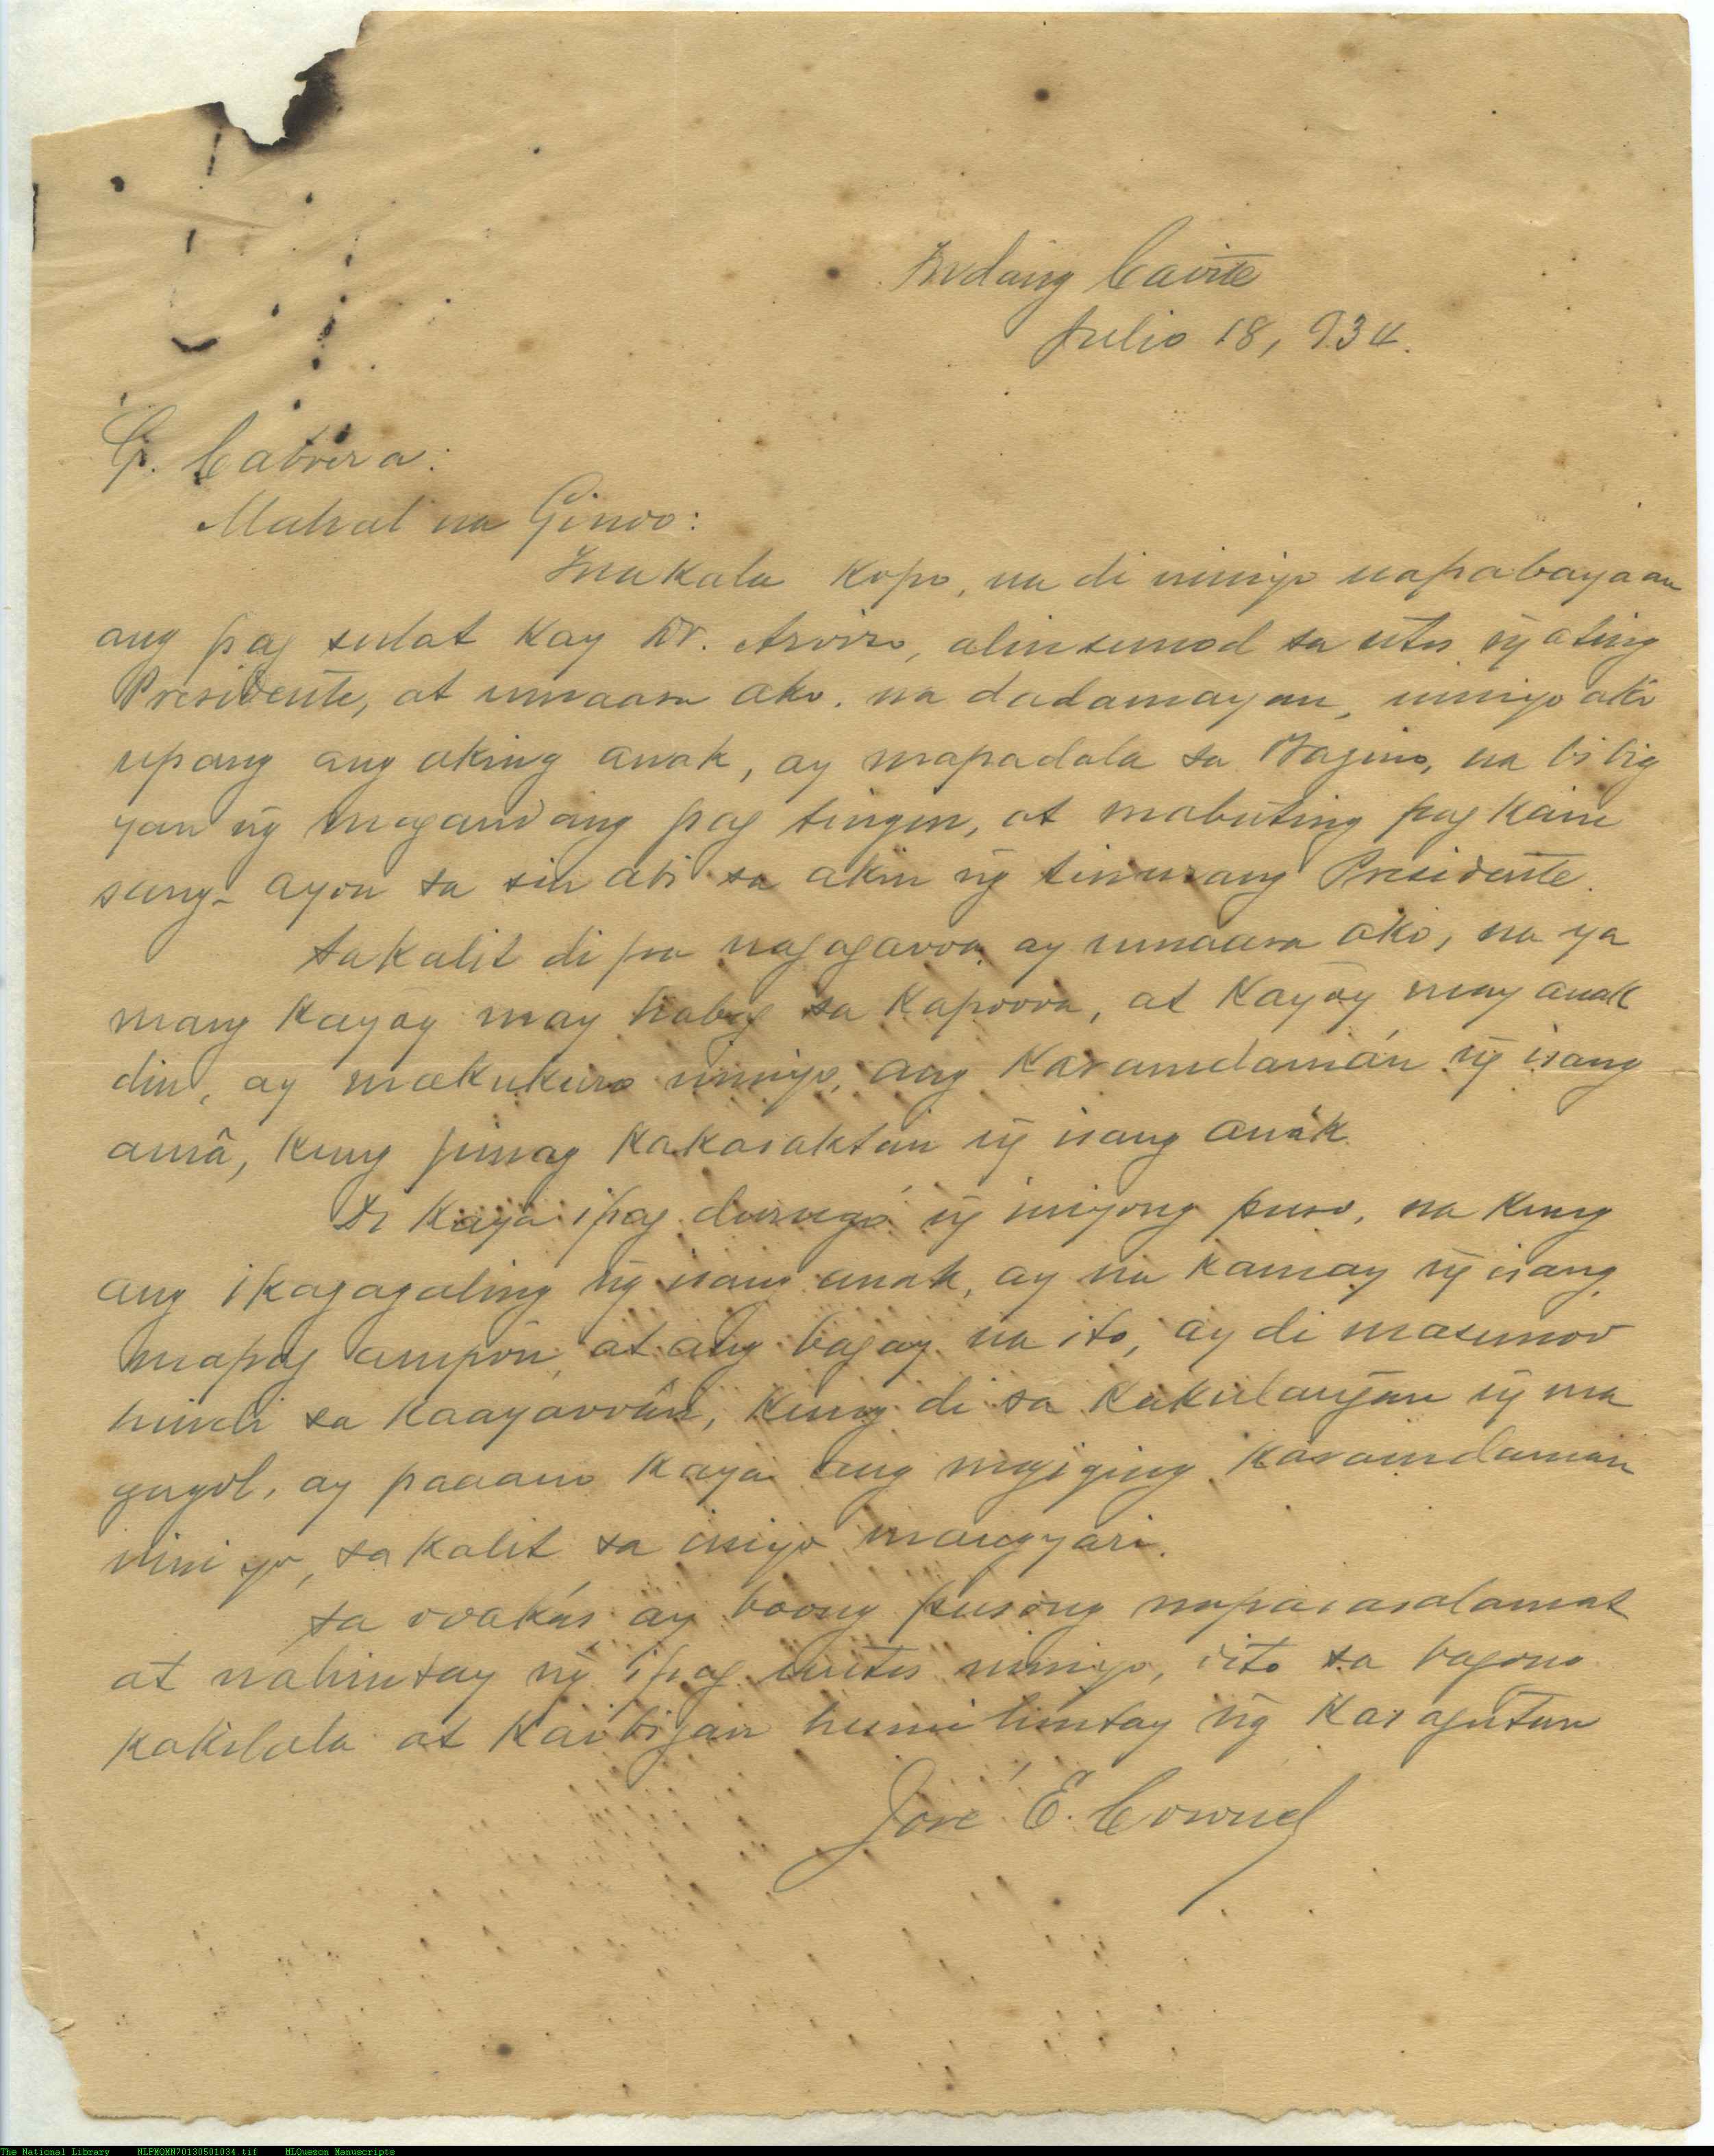 Indang Cavite
Julio 18, 934.
G. Cabrera:
Mahal na Ginoo:
Inakala kopo, na di ninyo napabayaan
ang pag sulat kay Dr. , alinsunod sa utos ng ating
Presidente, at umaasa ako. na dadamayan, ninyo ako
upang ang aking anak, ay mapadala sa Baguio, na bibig
yan ng magandang pag tingin, at mabuting pag kain
sung-ayon sa sin abi sa akin ng tinurang Presidente.
Sakalit di pa nagagawa, ay umaasa ako, na ya
mang kayoy may habag sa kapowa, at kayoy may anak
din, ay makukuro ninyo, ang karamdamán ng isang
amâ, kung pinag kakasaktan ng isang anák.
Di kaya ipag durugó ng inyong puso, na kung
ang ikagagaling ng isang anak, ay na kamay ng isang
mapag ampon, at ang bagay na ito, ay di masunod
hindi sa kaayawan, kung di sa kakulangan ng ma
gugol, ay paaano kaya ang magiging karamdaman
nin yo, sakalit sa inyo mangyari.
Sa wakás ay boong pusong napasasalamat
at nahintay ng ipag uutos ninyo, dito sa bagong
kakilala at kaibigan humihintay ng kasagutan
José E. Coronel
The National Library NLPMQMN70130501034.tif MLQuezon Manuscripts